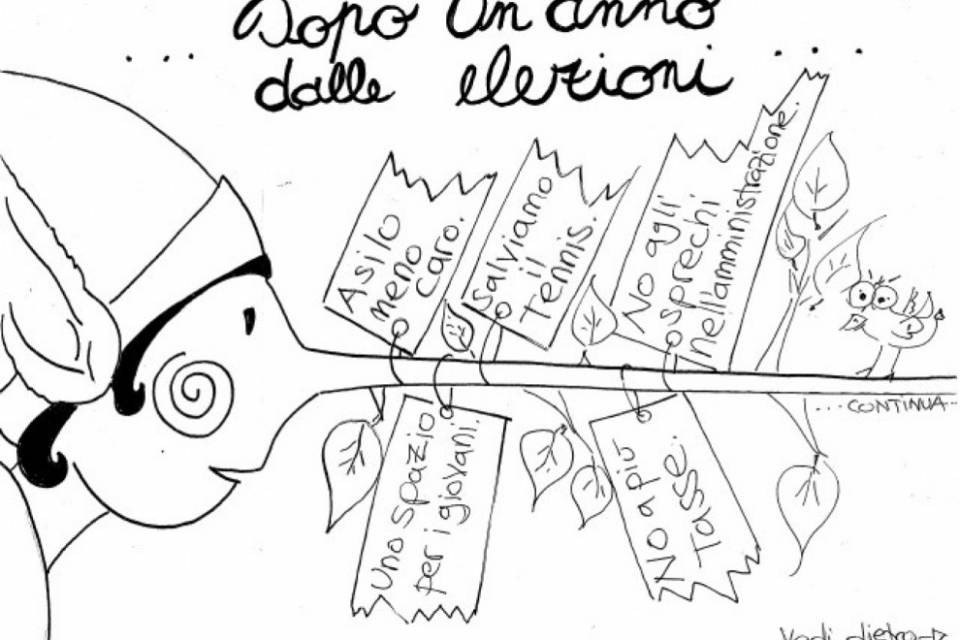 Dopo Un anno
... dalle elezioni ....
Asilo
meno
caro.
Salviamo
il
Tennis.
No agli
sprechi
nell'amministrazione.
...CONTINUA...
Uno spazio
per i giovani.
No a più
Tasse.
Vedi dietro